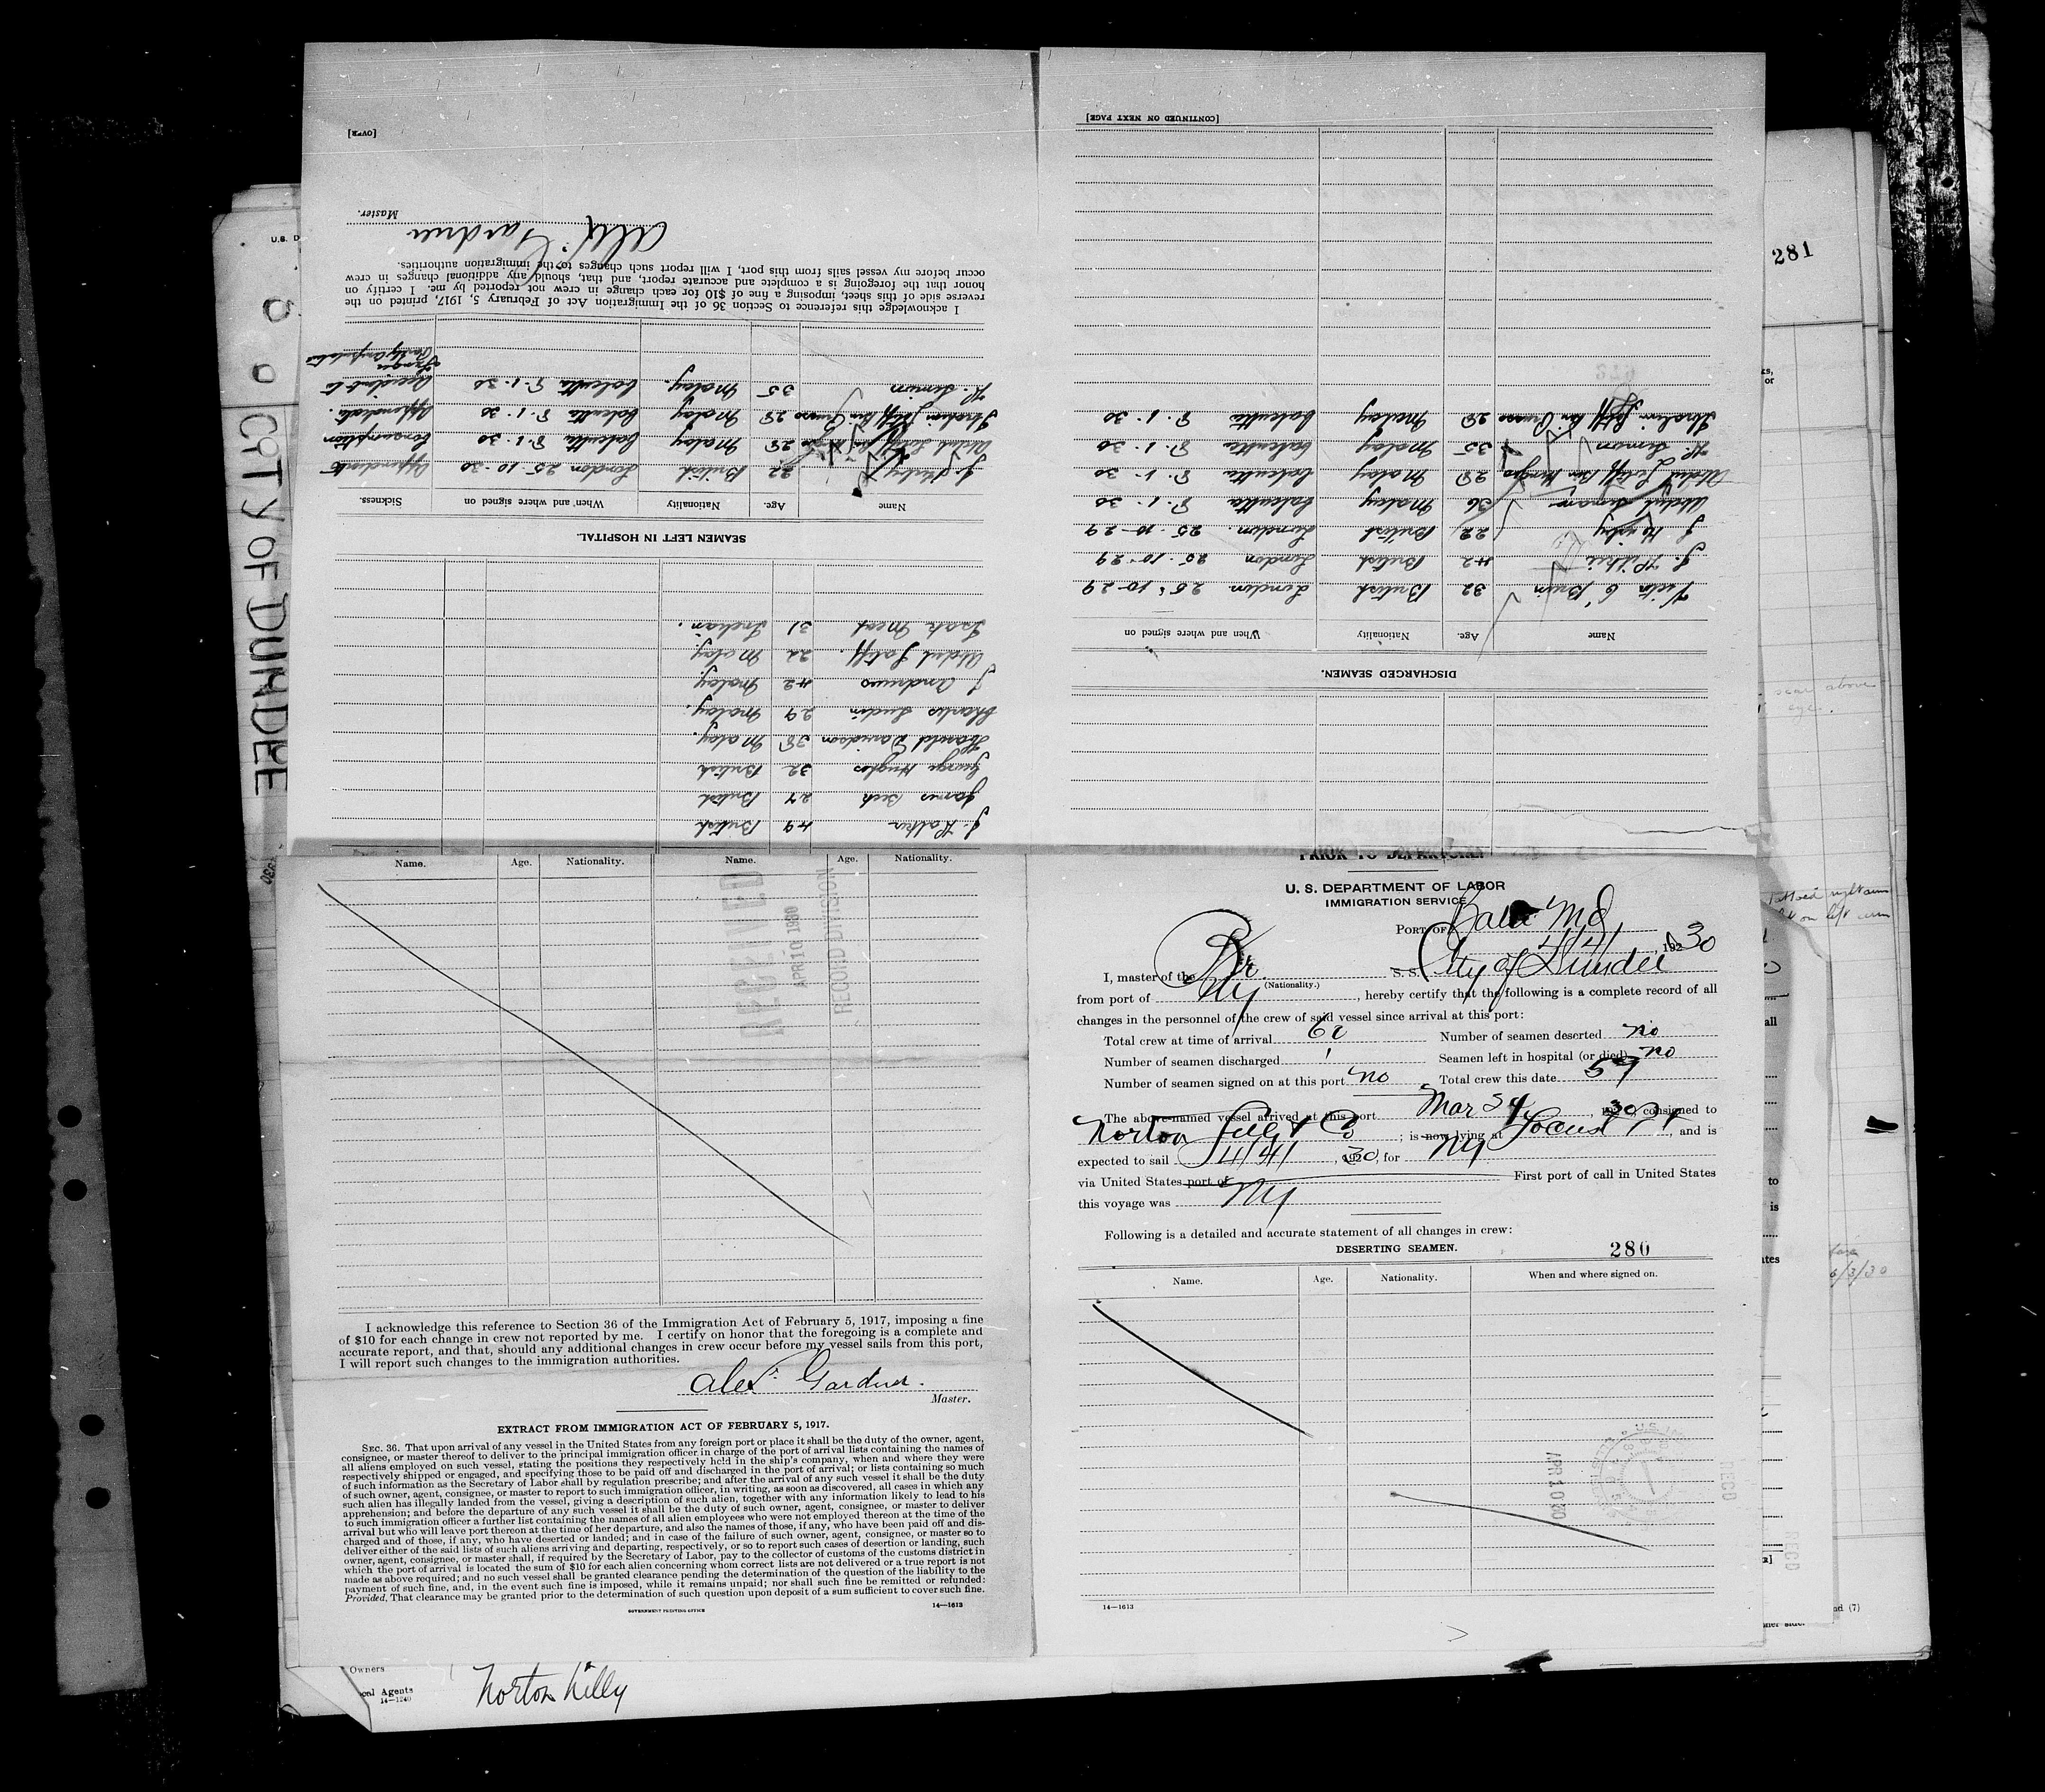 281
U.S. D
CITY OF DUNDEE
[CONTINUED ON NEXT PAGE]
DISCHARGED SEAMEN.
Name Age. Nationality When and where signed on
32 British London 25.10-29
J. 42 British London 25.10-29
J. 22 British London. 25.10-29
Abdul 36 Malay Calcutta 8.1.30
Abdul Latiff Bin 28 Malay Calcutta 8.1.30
K. Simion 35 Malay Calcutta 8.1.30
Ibrahim Bin 28 Malay Calcutta 8.1.30
J. 49 British
James Beck 27 British
George Hughes 32 British
Harold Davidson 38 Malay.
Charles 29 Malay.
J. Andrews 42 Malay
Abdul Latiff. 22 Malay.
31 Indian.
SEAMEN LEFT IN HOSPITAL.
Name Age. Nationality When and where signed on Sickness.
J. 22 British London 25.10.30 Appendicitis
Abdul Latiff Bin 28 Malay Calcutta 8.1.30 Consumption
Ibrahim Bin 28 Malay Calcutta 8.1.30 Appendicitis.
K. Simion 35 Malay. Calcutta 8.1.30 Accident to
Finger
Partly amputated
I acknowledge this reference to Section 36 of the Immigration Act of February 5, 1917, printed on the
reverse side of this sheet, imposing a fine of $10 for each change in crew not reported by me. I certify on
honor that the foregoing is a complete and accurate report, and that, should any additional changes in crew
occur before my vessel sails from this port, I will report such changes to the immigration authorities.
Alex Gardner
Master.
[OVER]
Name. Age. Nationality. Name. Age. Nationality.
RECEIVED
APR 10 1930
RECORD DIVISION
I acknowledge this reference to Section 36 of the Immigration Act of February 5, 1917, imposing a fine
of $10 for each change in crew not reported by me. I certify on honor that the foregoing is a complete and
accurate report, and that, should any additional changes in crew occur before my vessel sails from this port,
I will report such changes to the immigration authorities.
Alex. Gardner.
Master.
EXTRACT FROM IMMIGRATION ACT OF FEBRUARY 5, 1917.
SEC. 36. That upon arrival of any vessel in the United States from any foreign port or place it shall be the duty of the owner, agent,
consignee, or master thereof to deliver to the principal immigration officer in charge of the port of arrival lists containing the names of
all aliens employed on such vessel, stating the positions they respectively hold in the ship's company, when and where they were
respectively shipped or engaged, and specifying those to be paid off and discharged in the port of arrival; or lists containing so much
of such information as the Secretary of Labor shall by regulation prescribe; and after the arrival of any such vessel it shall be the duty
of such owner, agent, consignee, or master to report to such immigration officer, in writing, as soon as discovered, all cases in which any
such alien has illegally landed from the vessel, giving a description of such alien, together with any information likely to lead to his
apprehension; and before the departure of any such vessel it shall be the duty of such owner, agent, consignee, or master to deliver
to such immigration officer a further list containing the names of all alien employees who were not employed thereon at the time of the
arrival but who will leave port thereon at the time of her departure, and also the names of those, if any, who have been paid off and dis-
charged and of those, if any, who have deserted or landed; and in case of the failure of such owner, agent, consignee, or master so to
deliver either of the said lists of such aliens arriving and departing, respectively, or so to report such cases of desertion or landing, such
owner, agent, consignee, or master shall, if required by the Secretary of Labor, pay to the collector of customs of the customs district in
which the port of arrival is located the sum of $10 for each alien concerning whom correct lists are not delivered or a true report is not
made as above required; and no such vessel shall be granted clearance pending the determination of the question of the liability to the
payment of such fine, and, in the event such fine is imposed, while it remains unpaid; nor shall such fine be remitted or refunded:
Provided, That clearance may be granted prior to the determination of such question upon deposit of a sum sufficient to cover such fine.
GOVERNMENT PRINTING OFFICE
14—1613
PRIOR TO DEPARTURE.
U. S. DEPARTMENT OF LABOR
IMMIGRATION SERVICE
PORT OF Balto Md
4/4/, 1930
I, master of the Br (Nationality.) S. S. City of Dundee
from port of NY, hereby certify that the following is a complete record of all
changes in the personnel of the crew of said vessel since arrival at this port:
Total crew at time of arrival 60 Number of seamen deserted no
Number of seamen discharged 1 Seamen left in hospital (or died) no
Number of seamen signed on at this port no Total crew this date 59
The above-named vessel arrived at this port Mar, 1930, consigned to
Norton Lilly & Co; is now lying at Locust Pt, and is
expected to sail 4/4/, 1930, for NY
via United States port of First port of call in United States
this voyage was NY
Following is a detailed and accurate statement of all changes in crew:
DESERTING SEAMEN.
280
Name. Age. Nationality. When and where signed on.
APR 10 1930
REC'D
REC'D
14—1613
scar above
eye.
6/3/30
Owners
ocal Agents
14—1240
Norton Lilly